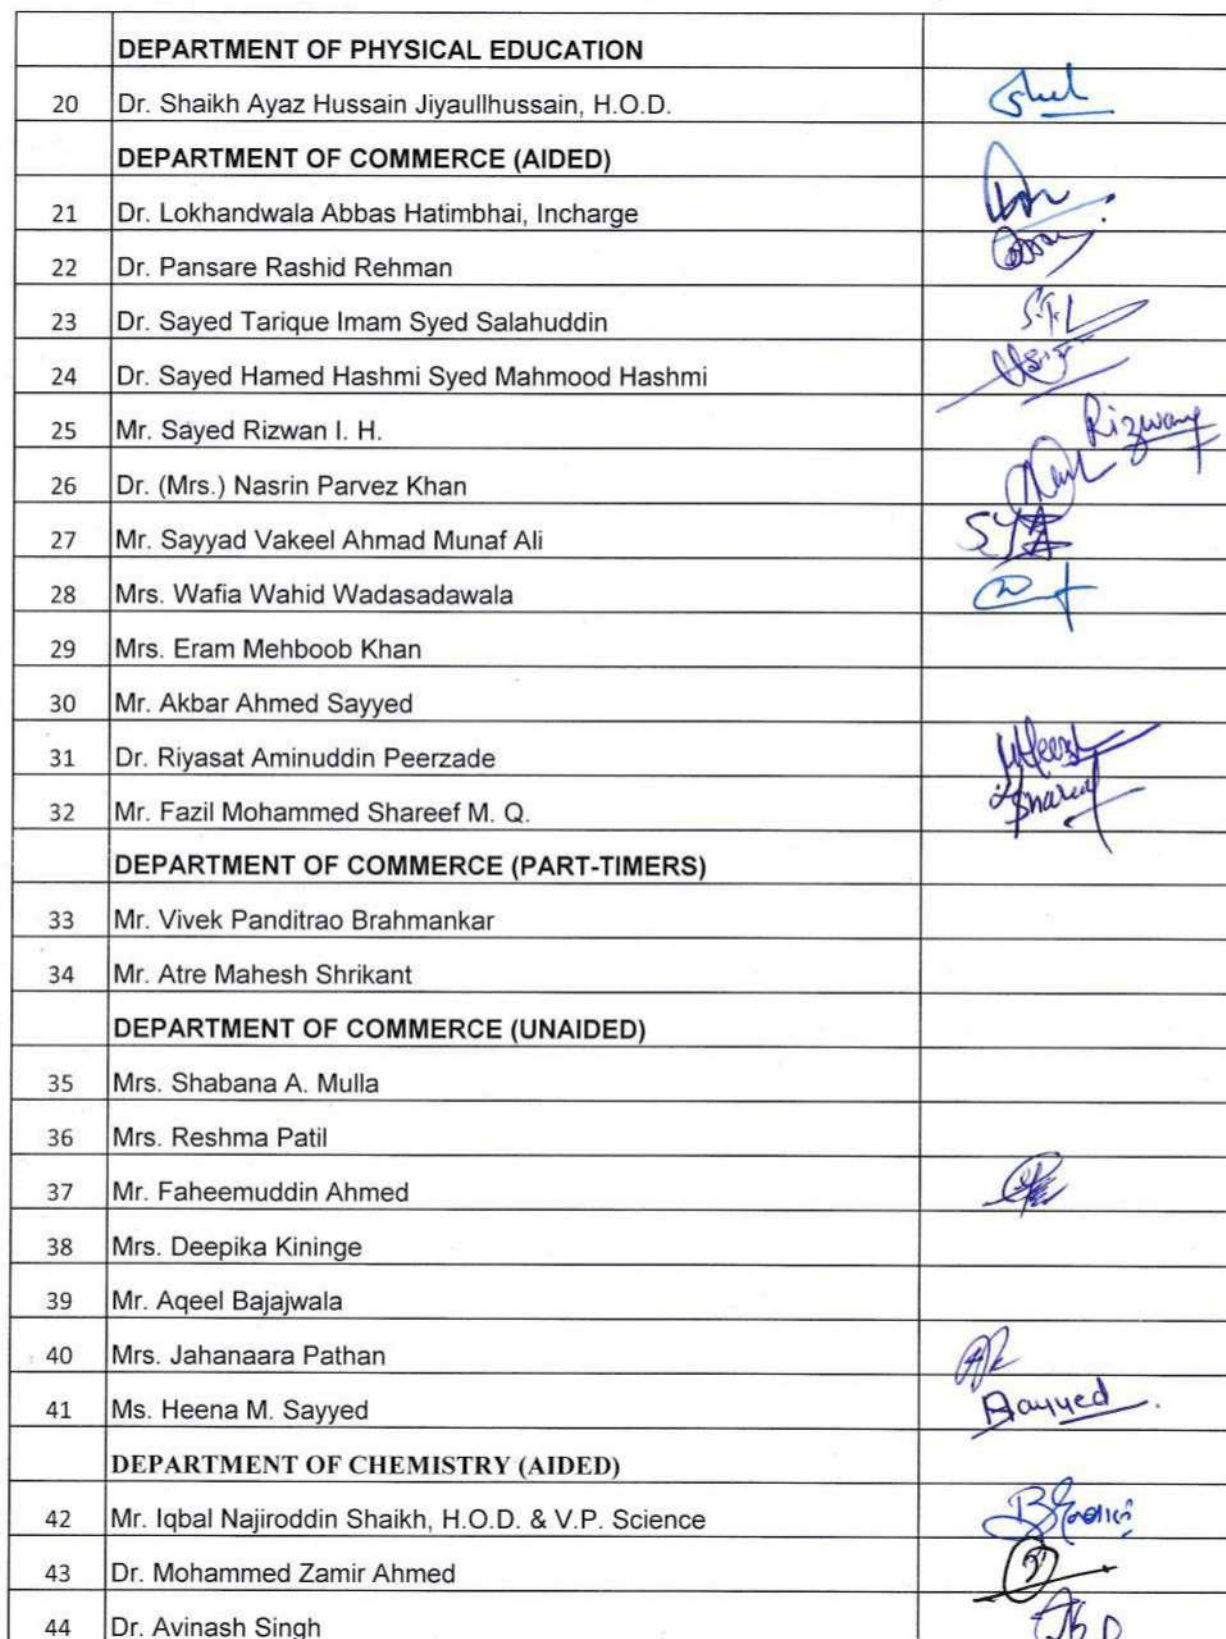 DEPARTMENT OF PHYSICAL EDUCATION
20 Dr. Shaikh Ayaz Hussain Jiyaullhussain, H.O.D.
DEPARTMENT OF COMMERCE (AIDED)
21 Dr. Lokhandwala Abbas Hatimbhai, Incharge
22 Dr. Pansare Rashid Rehman
23 Dr. Sayed Tarique Imam Syed Salahuddin
24 Dr. Sayed Hamed Hashmi Syed Mahmood Hashmi
25 Mr. Sayed Rizwan I. H. Rizwan
26 Dr. (Mrs.) Nasrin Parvez Khan
27 Mr. Sayyad Vakeel Ahmad Munaf Ali
28 Mrs. Wafia Wahid Wadasadawala
29 Mrs. Eram Mehboob Khan
30 Mr. Akbar Ahmed Sayyed
31 Dr. Riyasat Aminuddin Peerzade
32 Mr. Fazil Mohammed Shareef M. Q.
DEPARTMENT OF COMMERCE (PART-TIMERS)
33 Mr. Vivek Panditrao Brahmankar
34 Mr. Atre Mahesh Shrikant
DEPARTMENT OF COMMERCE (UNAIDED)
35 Mrs. Shabana A. Mulla
36 Mrs. Reshma Patil
37 Mr. Faheemuddin Ahmed
38 Mrs. Deepika Kininge
39 Mr. Aqeel Bajajwala
40 Mrs. Jahanaara Pathan
41 Ms. Heena M. Sayyed
DEPARTMENT OF CHEMISTRY (AIDED)
42 Mr. Iqbal Najiroddin Shaikh, H.O.D. & V.P. Science
43 Dr. Mohammed Zamir Ahmed
44 Dr. Avinash Singh